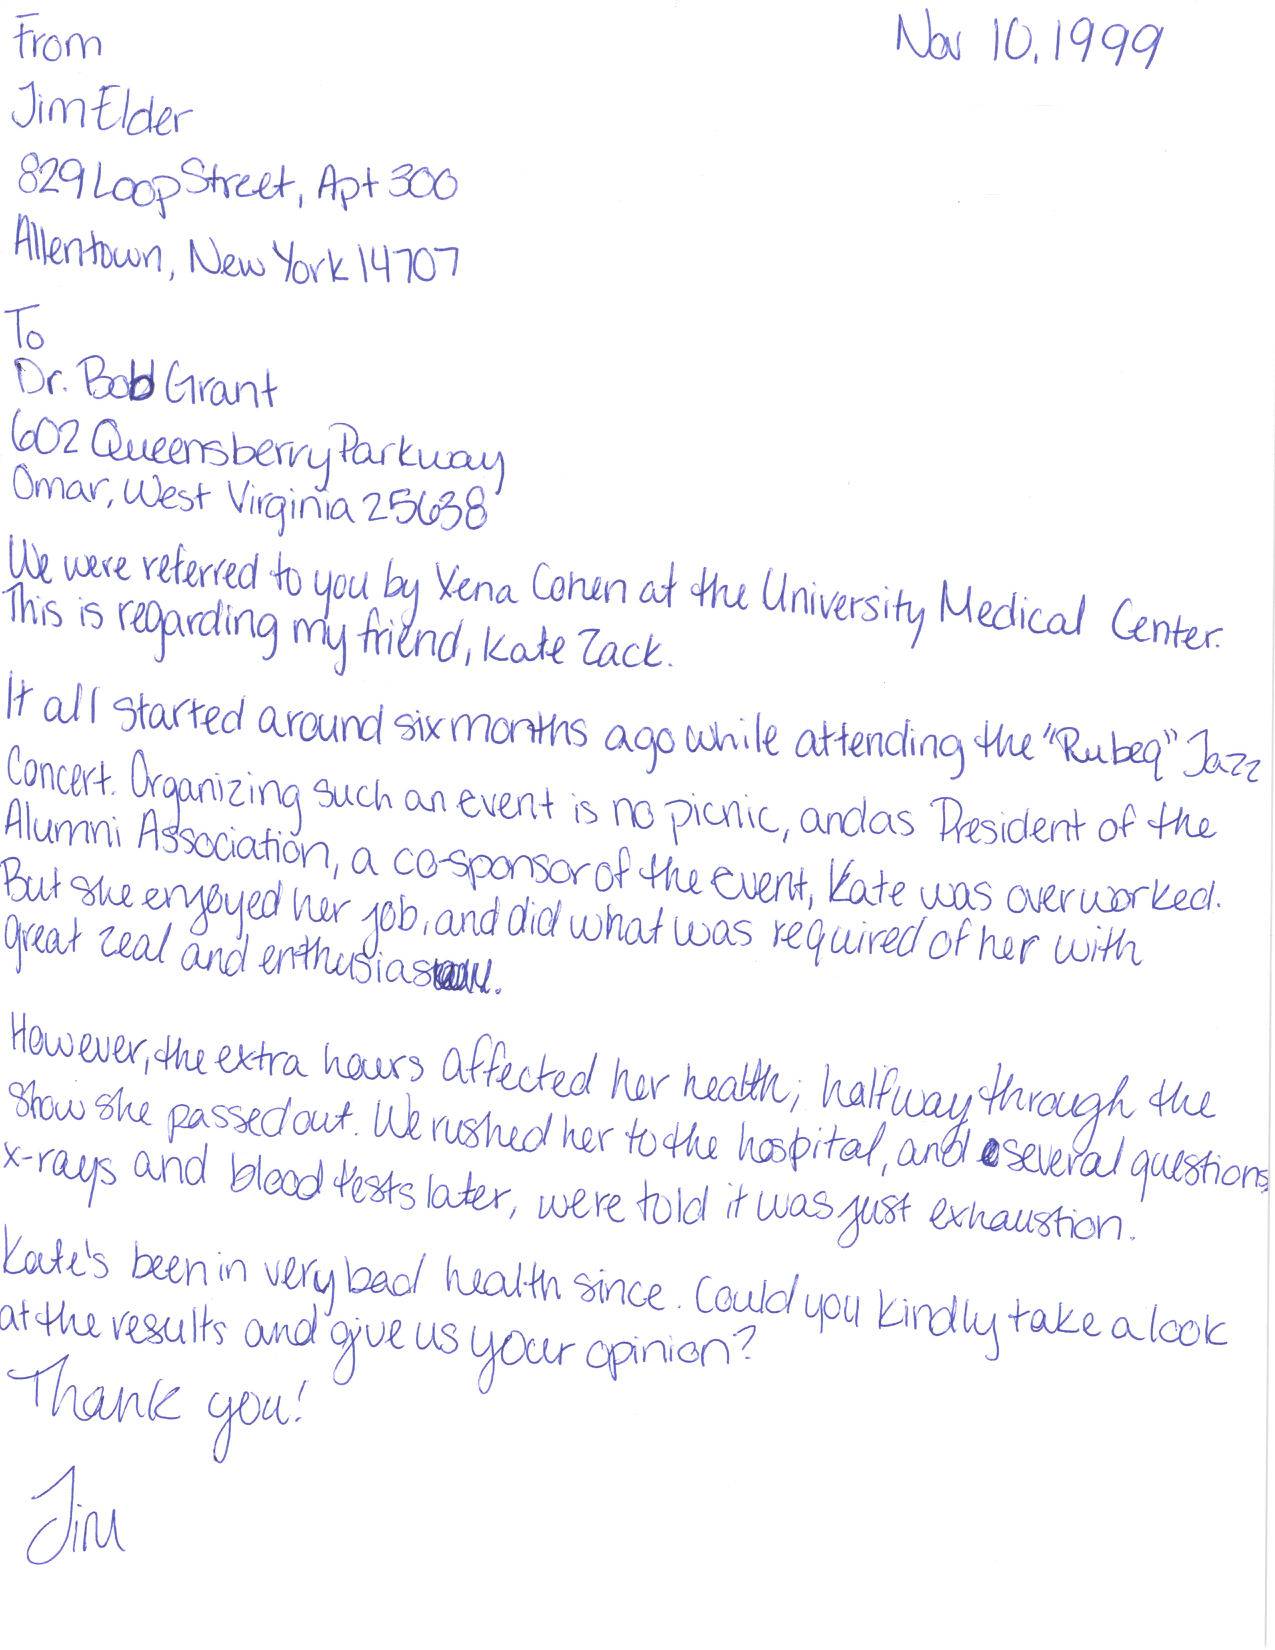 From
Nov 10, 1999
Jim Elder
829 Loop Street, Apt 300
Allentown, New York 14707
To
Dr. Bob Grant
602 Queensberry Parkway
Omar, West Virginia 25638
We were referred to you by Xena Cohen at the University Medical Center.
This is regarding my friend, Kate Zack.
It all started around six months ago while attending the "Rubeq" Jazz
Concert. Organizing such an event is no picnic, and as President of the
Alumni Association, a co-sponsor of the event, Kate was overworked.
But she enjoyed her job, and did what was required of her with
great zeal and enthusiasm.
However, the extra hours affected her health; halfway through the
show she passed out. We rushed her to the hospital, and several questions,
x-rays and blood tests later, were told it was just exhaustion.
Kate's been in very bad health since. Could you kindly take a look
at the results and give us your opinion?
Thank you!
Jim